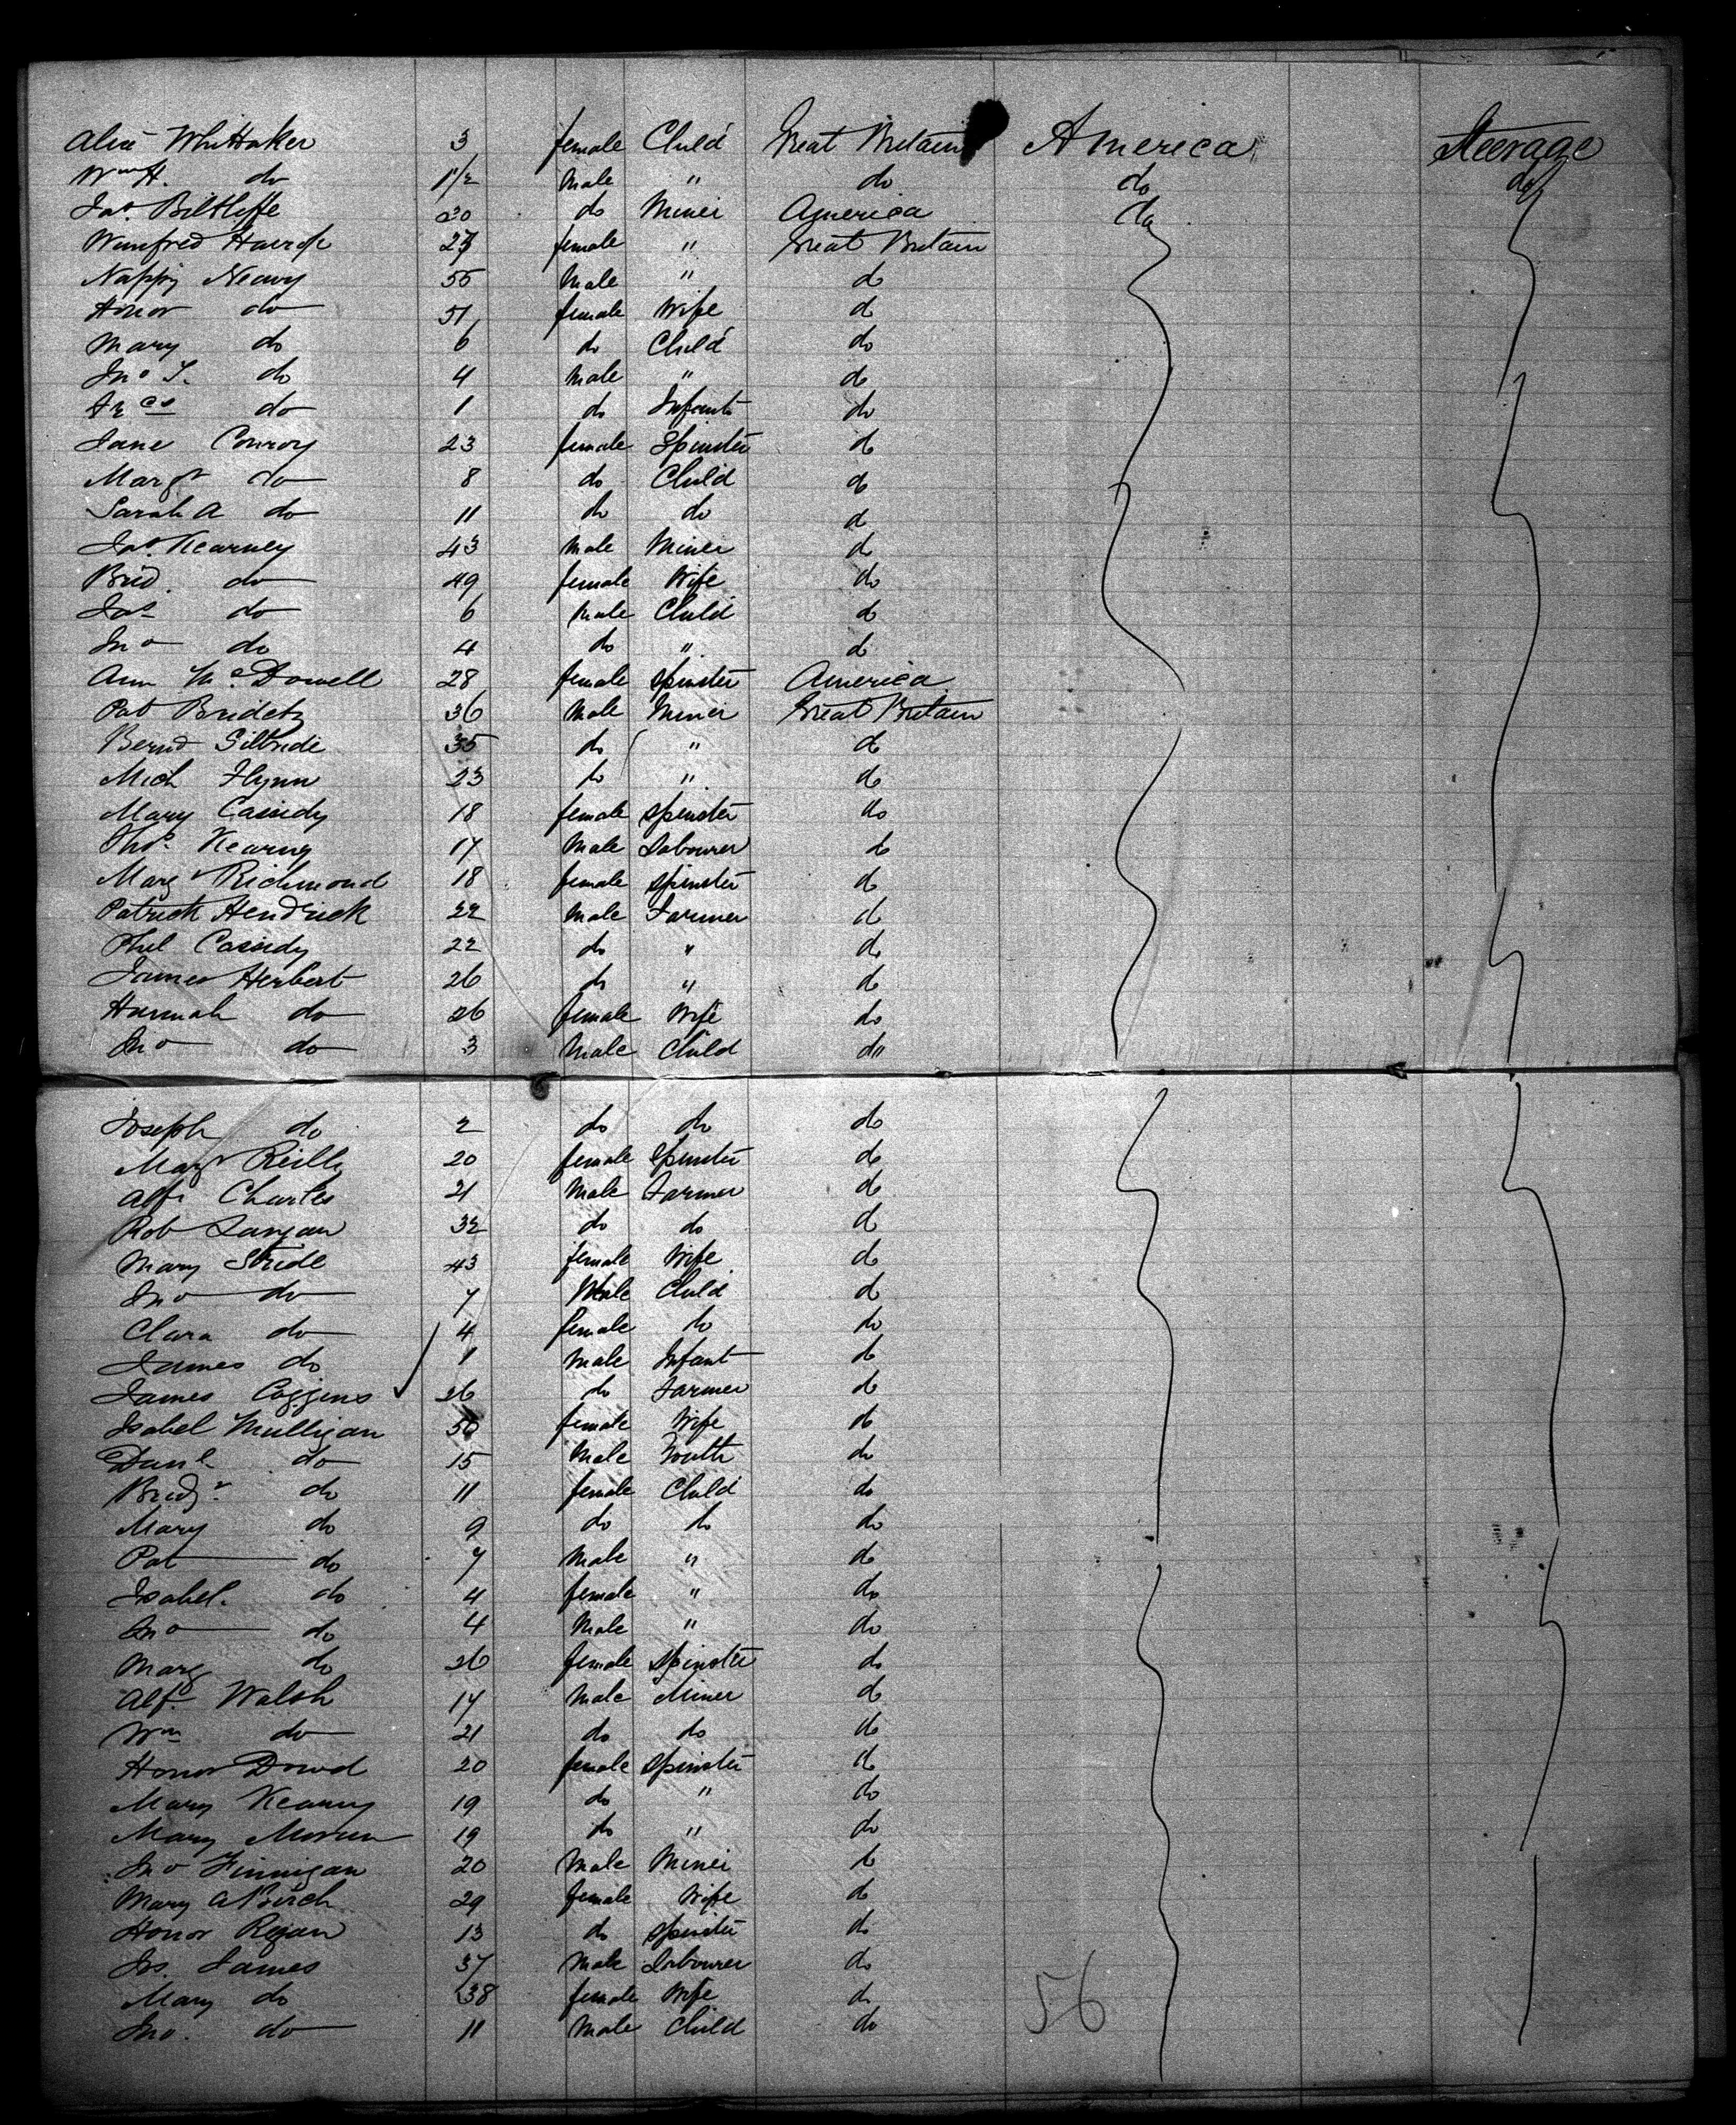 Alice Whittaker 3 female Child Great Britain America Steerage
Wm H. do 1 1/2 Male " do do do
Jas. Biltliffe 30 do Miner America do
Winifred 27 female " Great Britain
Neavy 55 Male " do
Honor do 51 female Wife do
Mary do 6 do Child do
Jno T. do 4 Male " do
Frcs do 1 do Infant do
Jane Conroy 23 female Spinster do
Margt do 8 do Child do
Sarah A do 11 do do do
Jas. Kearney 43 Male Miner do
Brid. do 49 female Wife do
Jas do 6 Male Child do
Jno do 4 do " do
Ann McDowell 28 female Spinster America
Pat 36 Male Miner Great Britain
Bernd Gilbride 35 do " do
Mich Flynn 23 do " do
Mary Cassidy 18 female Spinster do
Thos. Kearny 17 Male Labourer do
Margt Richmond 18 female Spinster do
Patrick Hendrick 22 Male Farmer do
Phil Cassidy 22 do " do
James Herbert 26 do " do
Hannah do 26 female Wife do
Jno do 3 Male Child do
Joseph do 2 do do do
Margt Reilly 20 female Spinster do
Alfr Charles 21 Male Farmer do
Rob Langan 32 do do do
Mary Stride 43 female Wife do
Jno do 7 Male Child do
Clara do 4 female do do
James do 1 Male Infant do
James Coggins 26 do Farmer do
Isabel Mulligan 50 female Wife do
Danl do 15 Male Youth do
Bridgt do 11 female Child do
Mary do 9 do do do
Pat do 7 Male " do
Isabel. do 4 female " do
Jno do 4 Male " do
Marg do 26 female Spinster do
Alf. Walsh 17 Male Miner do
Wm do 21 do do do
Honor Dowd 20 female Spinster do
Mary Kearny 19 do " do
Mary Moran 19 do " do
Jno Finnigan 20 Male Miner do
Mary A Birch 29 female Wife do
Honor Regan 13 do Spinster do
Js. James 37 Male Labourer do
Mary do 38 female Wife do
Jno. do 11 Male Child do
56